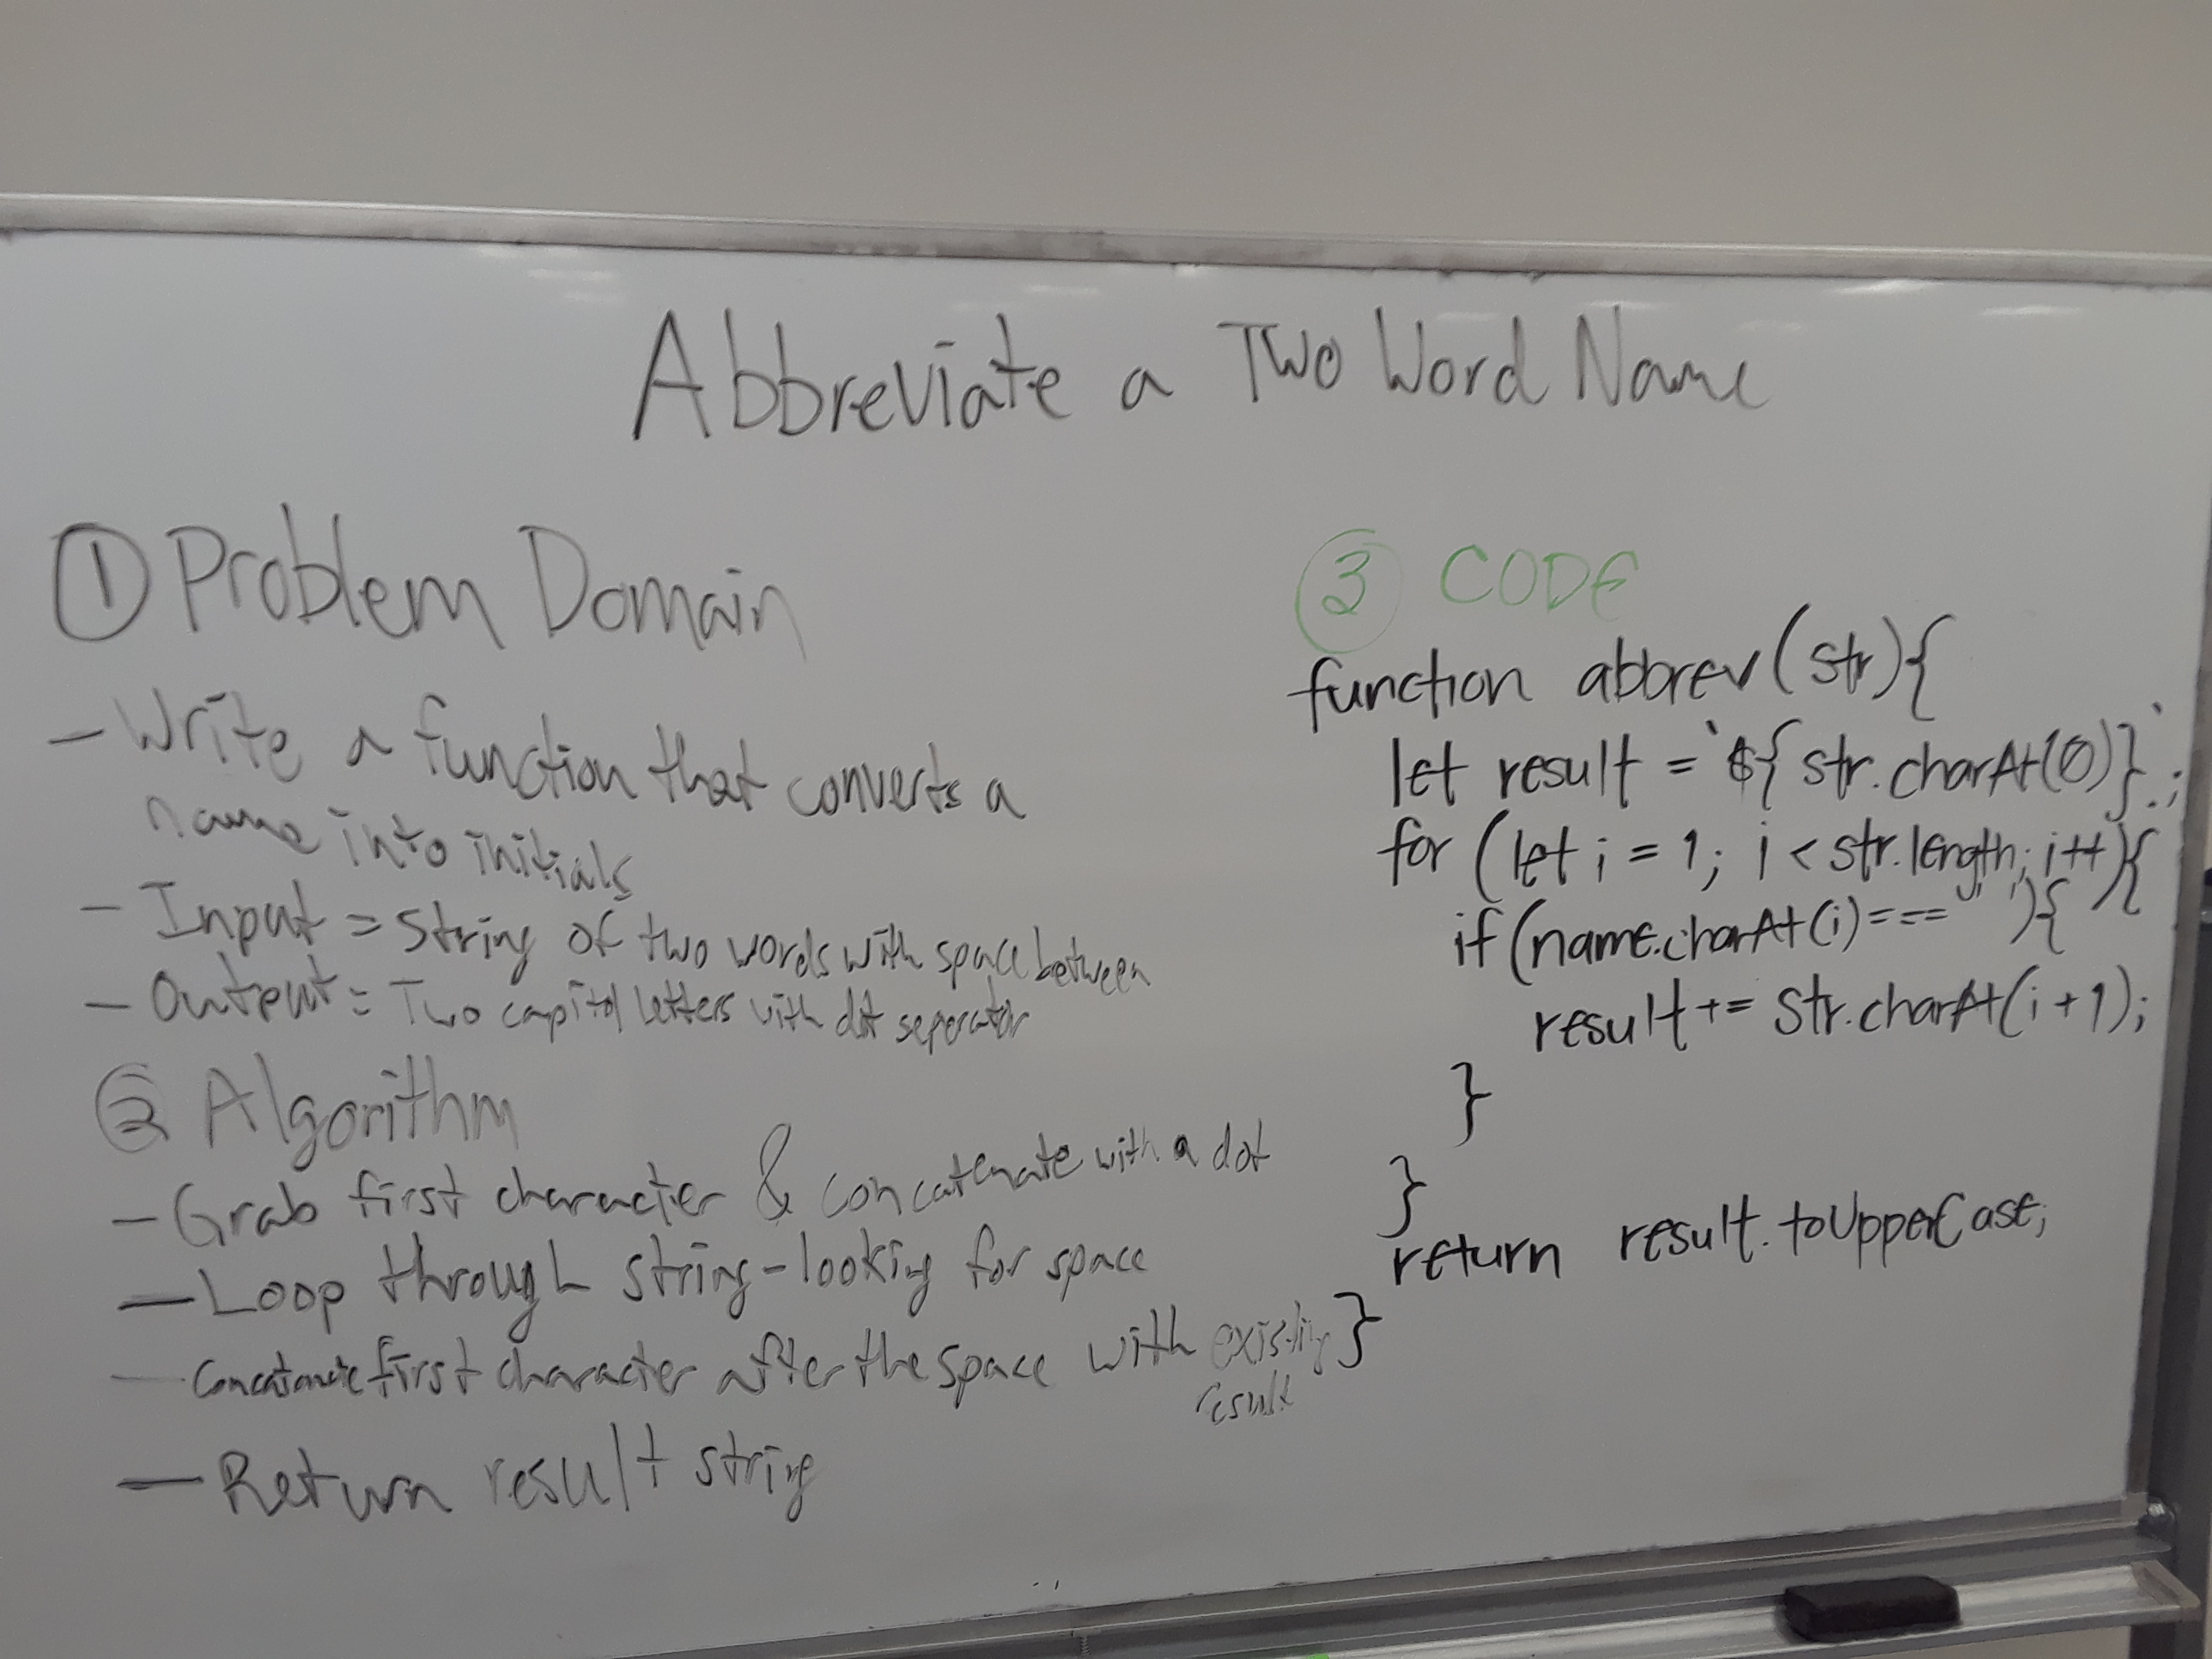 Abbreviate a Two Word Name
① Problem Domain
- Write a function that converts a
name into initials
- Input = String of two words with space between
- Output = Two capitol letters with dot seperator
② Algorithm
- Grab first character & concatenate with a dot
- Loop through string - looking for space
- Concatenate first character after the space with existing
result
- Return result string
③ CODE
function abbrev(str){
let result = `${str.charAt(0)}.`;
for (let i = 1; i < str.length; i++){
if (name.charAt(i) === ' '){
result += str.charAt(i+1);
}
}
return result.toUpperCase;
}